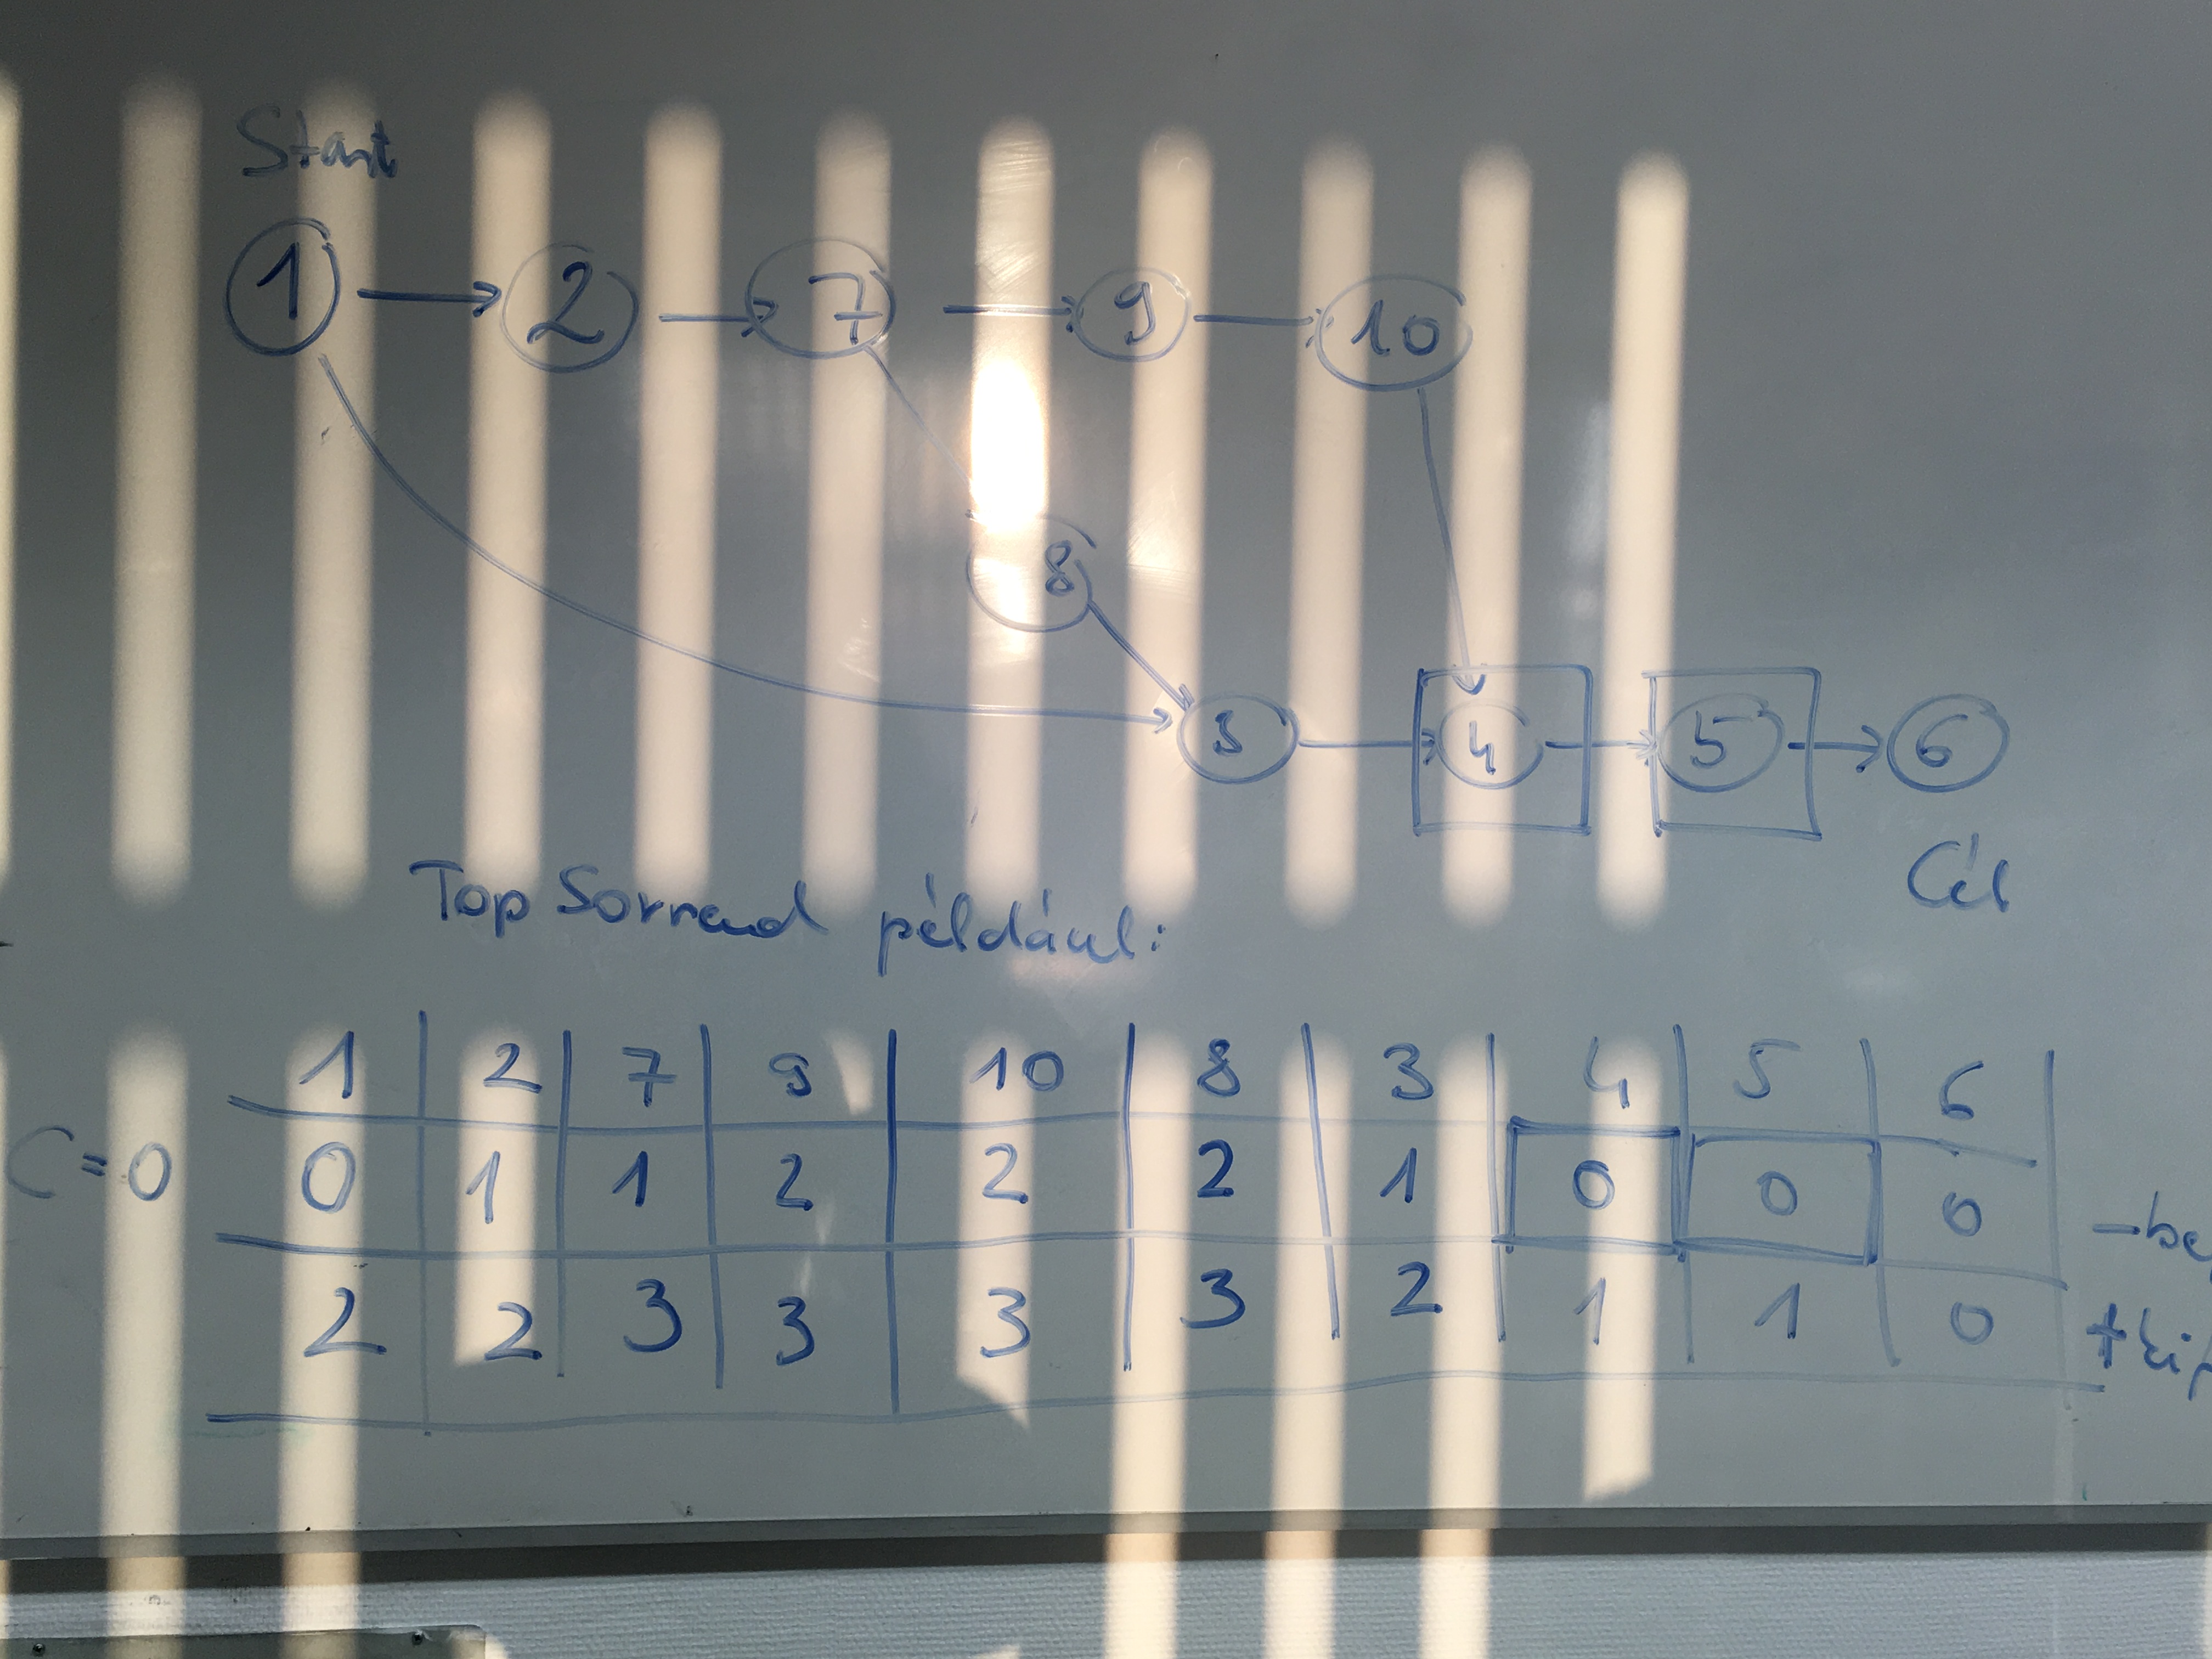 Start
1 2 7 9 10
8
3 4 5 6
Cél
Top Sorrend például:
1 2 7 9 10 8 3 4 5 6
C=0 0 1 1 2 2 2 1 0 0 0 -be
2 2 3 3 3 3 2 1 1 0 +ki